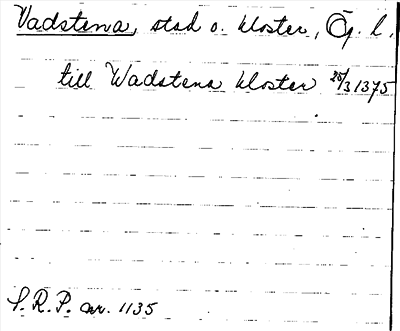 Vadstena, stad o. kloster, Ög. l.
till Wadstena kloster 25/3 1375
S.R.P. nr. 1135